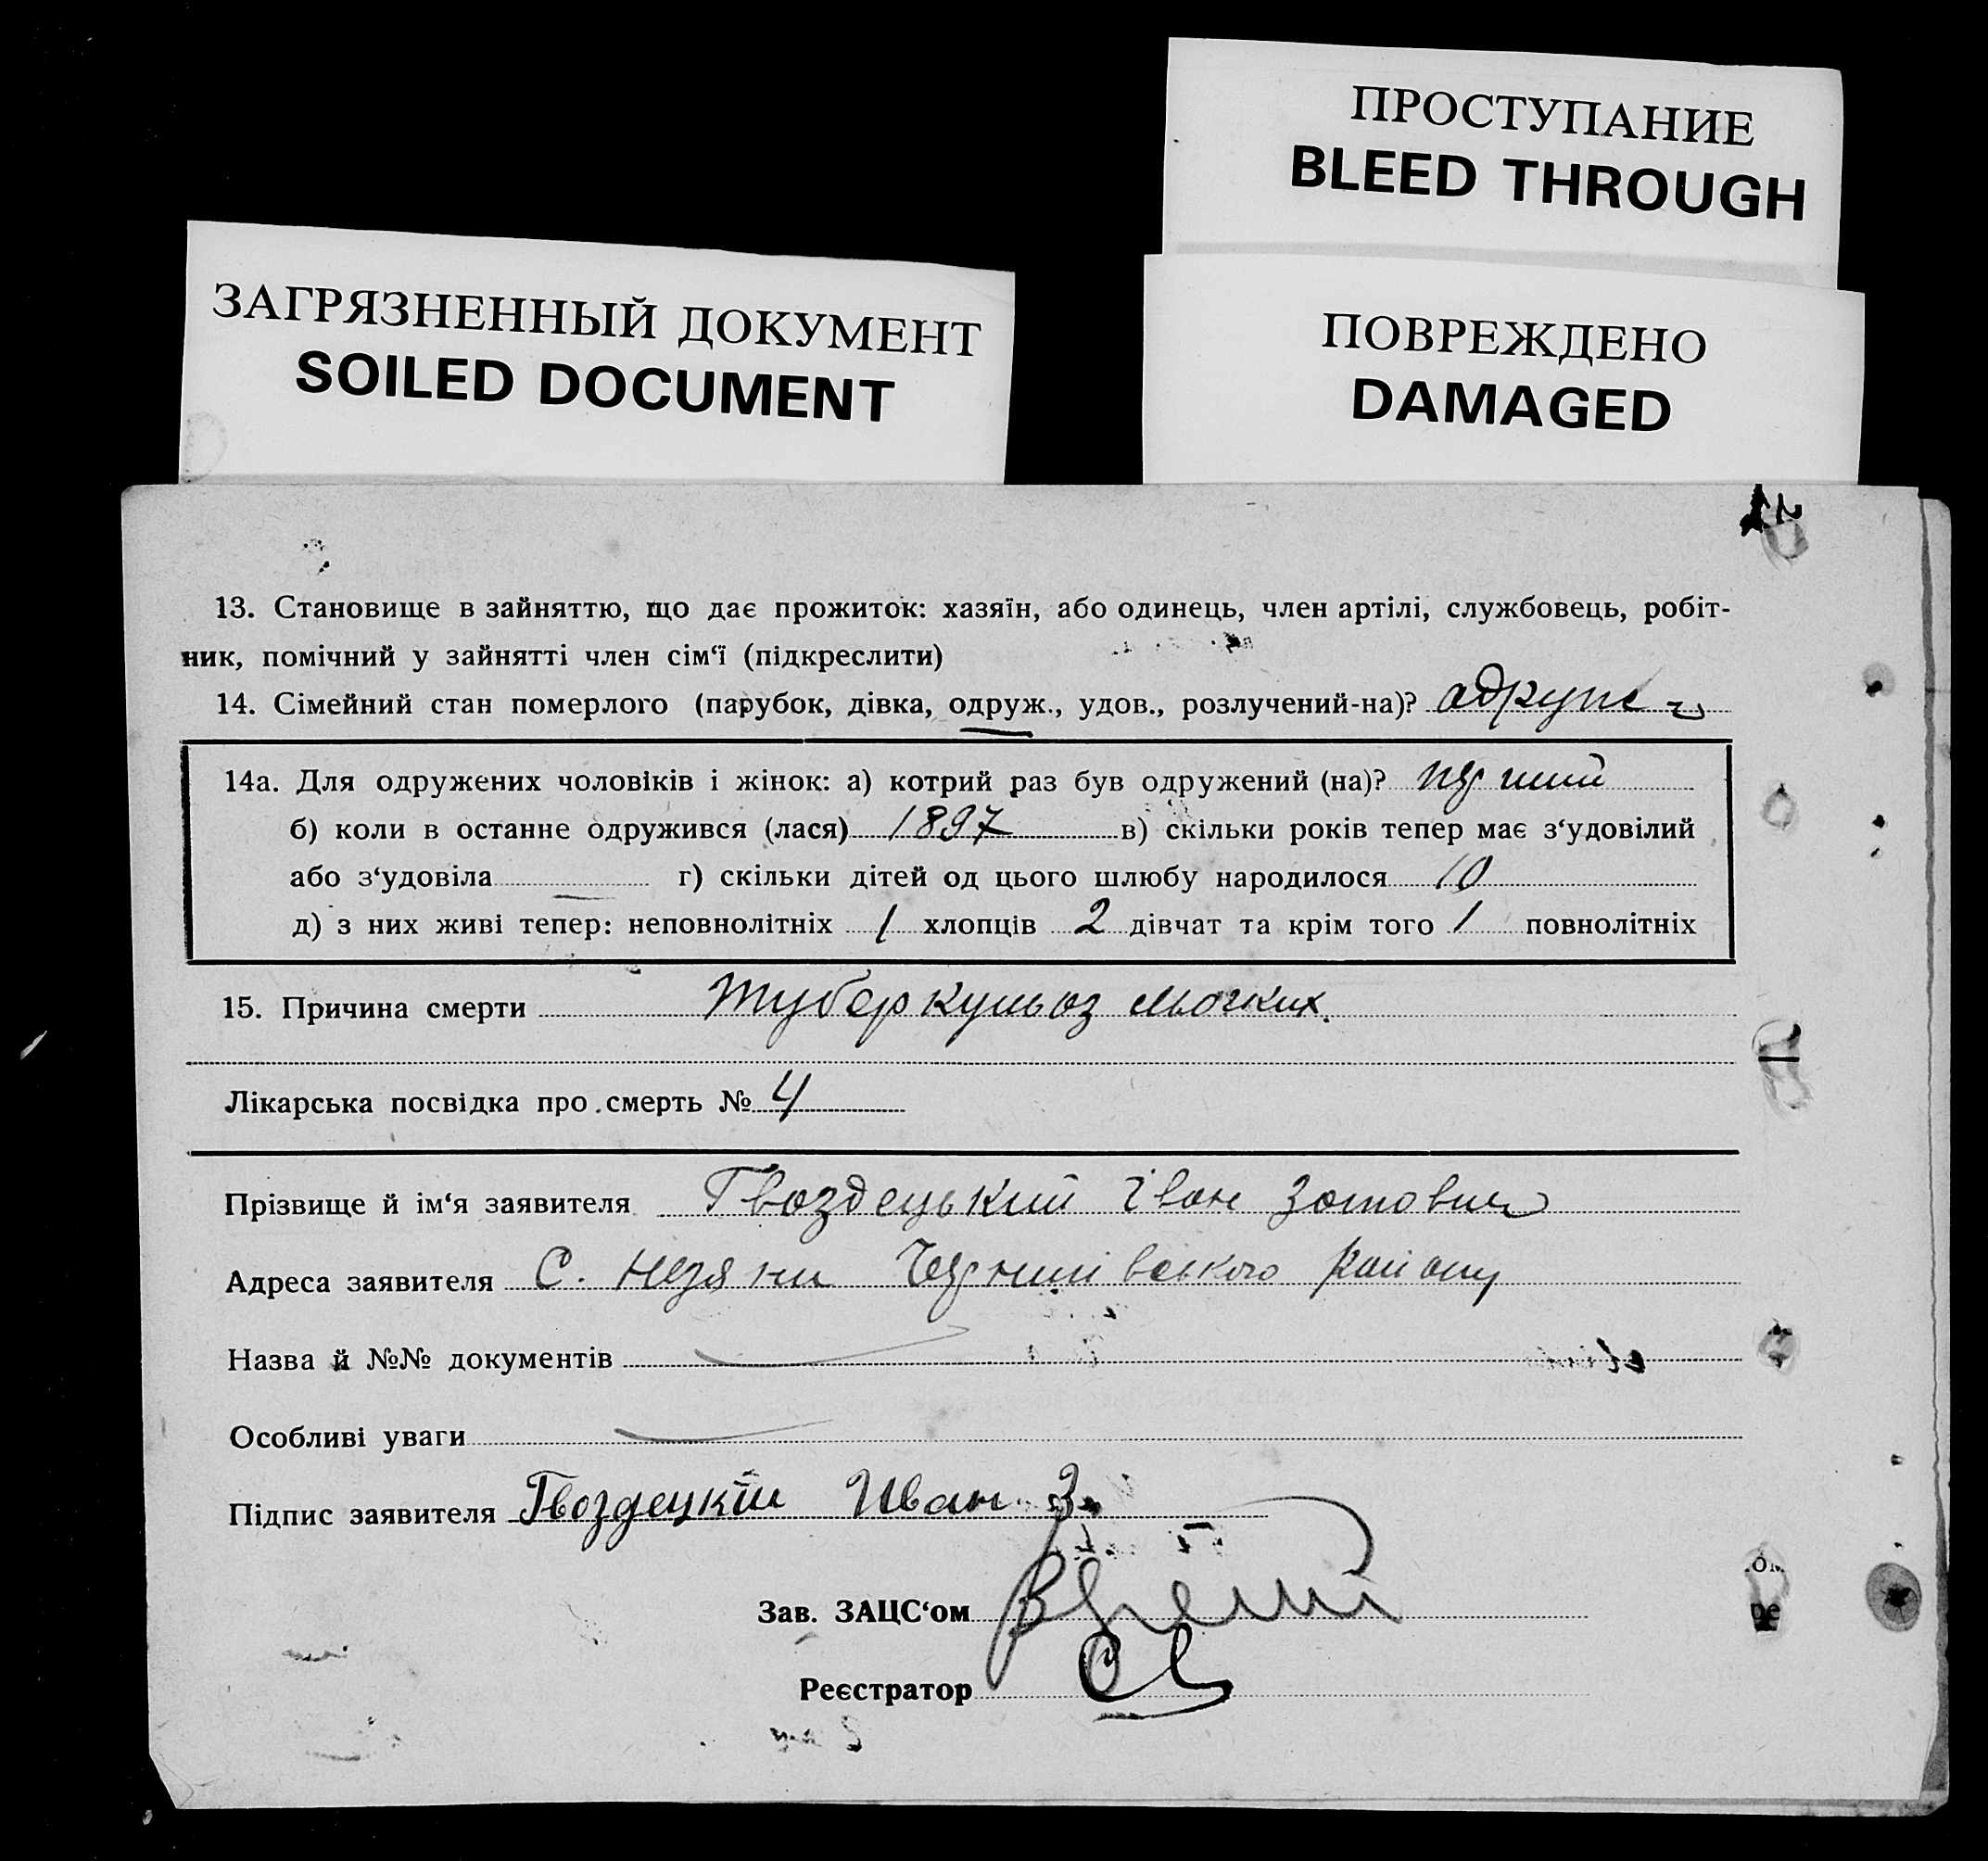 ПРОСТУПАНИЕ
BLEED THROUGH
ЗАГРЯЗНЕННЫЙ ДОКУМЕНТ
SOILED DOCUMENT
ПОВРЕЖДЕНО
DAMAGED
13. Становище в зайняттю, що дає прожиток: хазяїн, або одинець, член артілі, службовець, робіт-
ник, помічний у зайнятті член сім‘ї (підкреслити)
14. Сімейний стан померлого (парубок, дівка, одруж., удов., розлучений-на)?
14а. Для одружених чоловіків і жінок: а) котрий раз був одружений (на)? перший
б) коли в останнє одружився (лася) 1897 в) скільки років тепер має з‘удовілий
або з‘удовіла г) скільки дітей од цього шлюбу народилося 10
д) з них живі тепер: неповнолітніх 1 хлопців 2 дівчат та крім того 1 повнолітніх
15. Причина смерти Туберкульоз льогких.
Лікарська посвідка про смерть № 4
Прізвище й ім‘я заявителя Гвоздецький Іван Зотович
Адреса заявителя С. Чернишівського району
Назва й №№ документів
Особливі уваги
Підпис заявителя Гвоздецкій Иван З.
Зав. ЗАЦС‘ом
Реєстратор